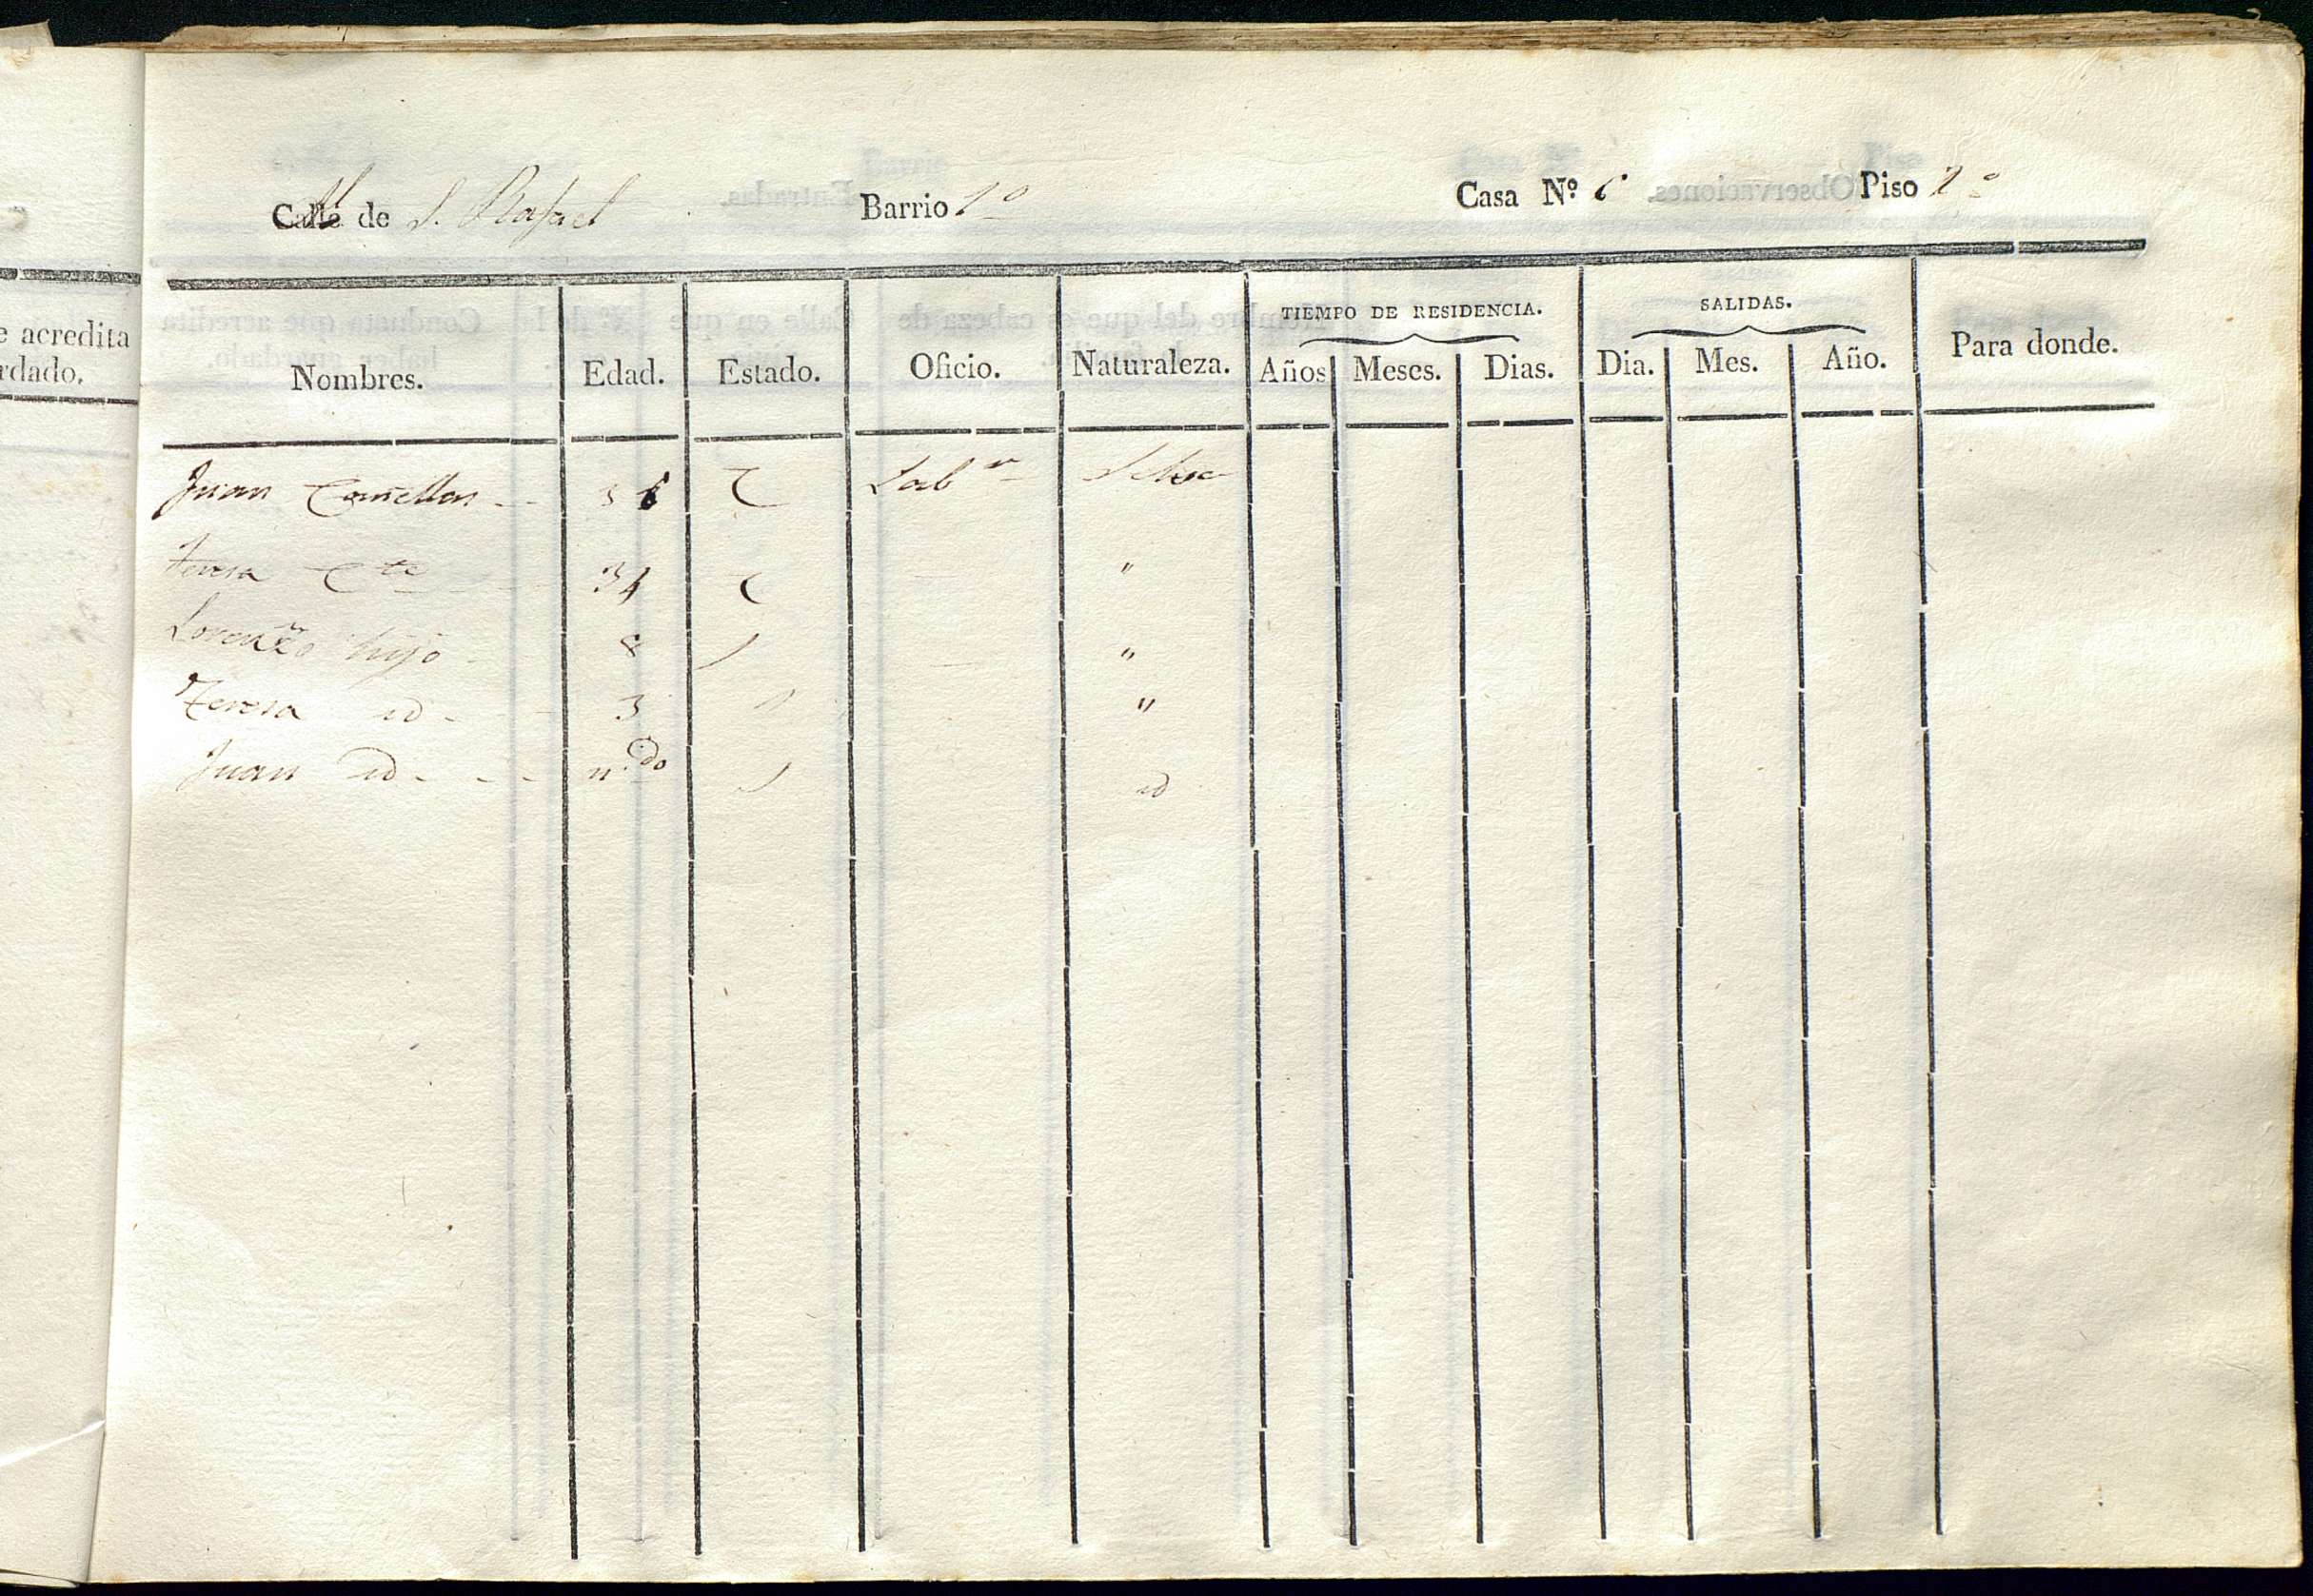 Calle de S. Rafael Barrio 1º Casa Nº 6 Piso 2º
e acredita
rdado.
TIEMPO DE RESIDENCIA. SALIDAS.
Nombres. Edad. Estado. Oficio. Naturaleza. Años Meses. Dias. Dia. Mes. Año. Para donde.
Juan Cañellas -- 36 C Labor Selva
Teresa Cte 34 C "
Lorenzo hijo 8 "
Teresa id - 3 "
Juan id - - - n.do id